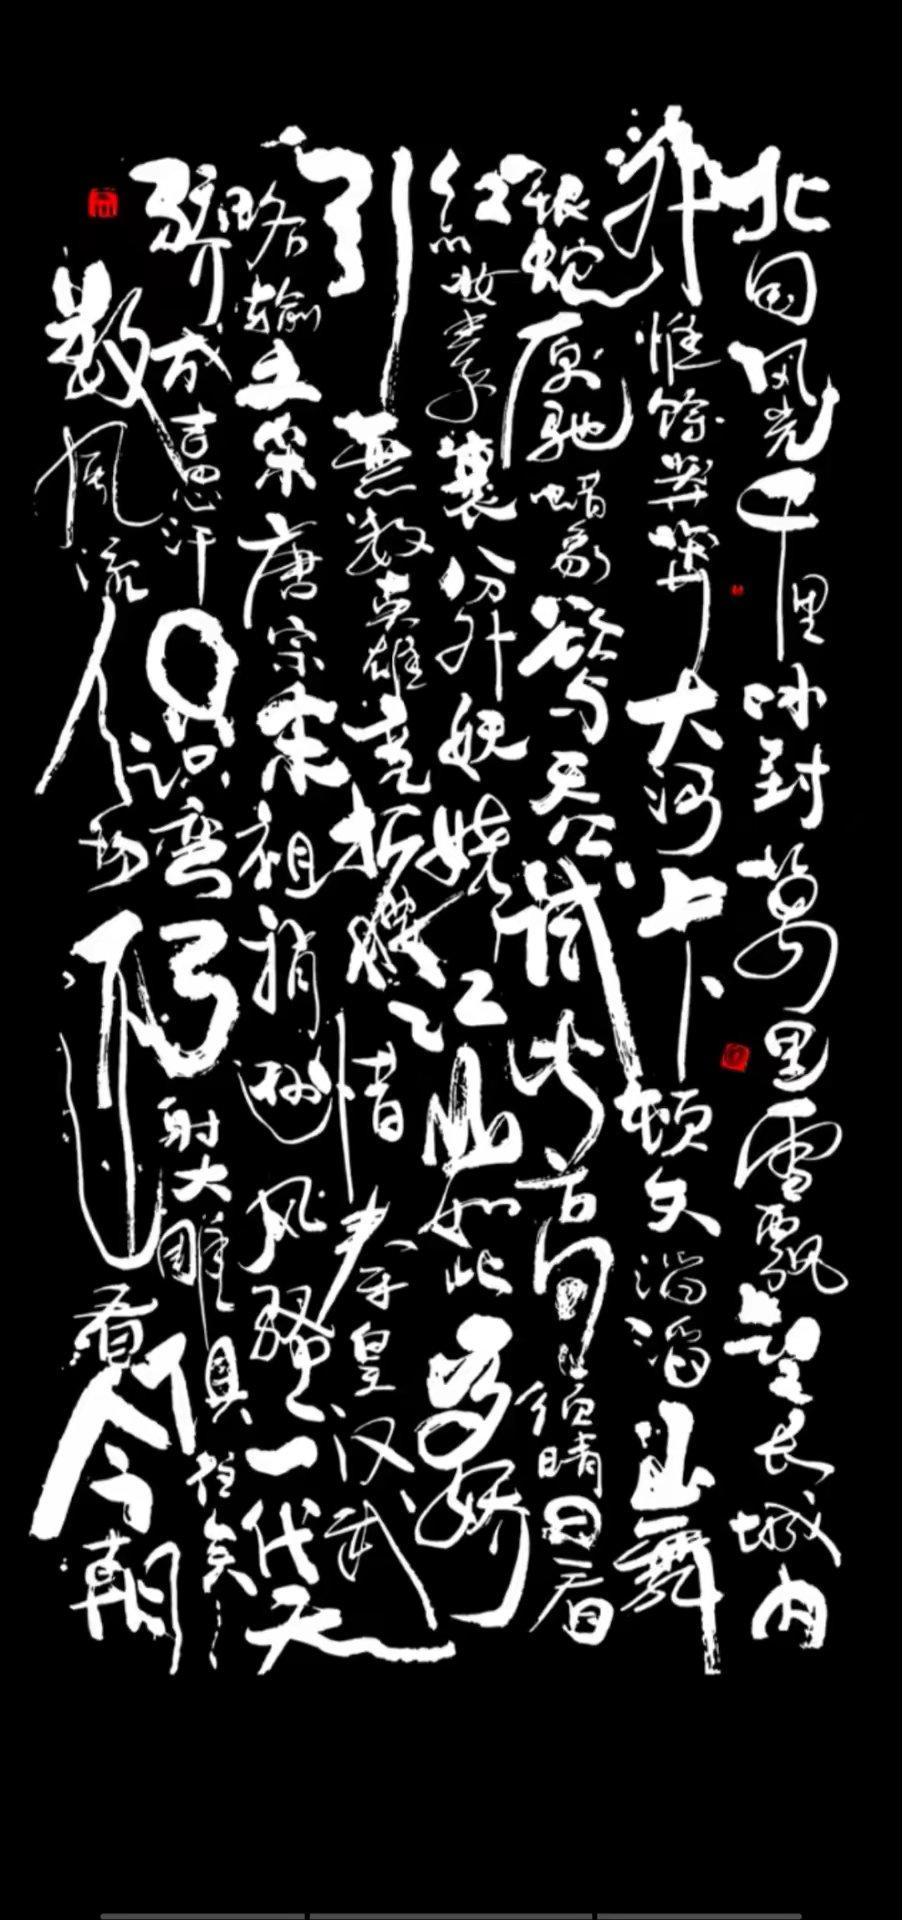 北国风光千里冰封萬里雪飘望长城内
外惟馀莽莽大河上下顿失滔滔山舞
银蛇原驰蜡象欲与天公试比高须晴日看
红妆素裹分外妖娆江山如此多娇
引無数英雄竞折腰惜秦皇汉武
略输文采唐宗宋祖稍逊风骚一代天
骄成吉思汗只识弯弓射大雕俱往矣
数风流人物还看今朝